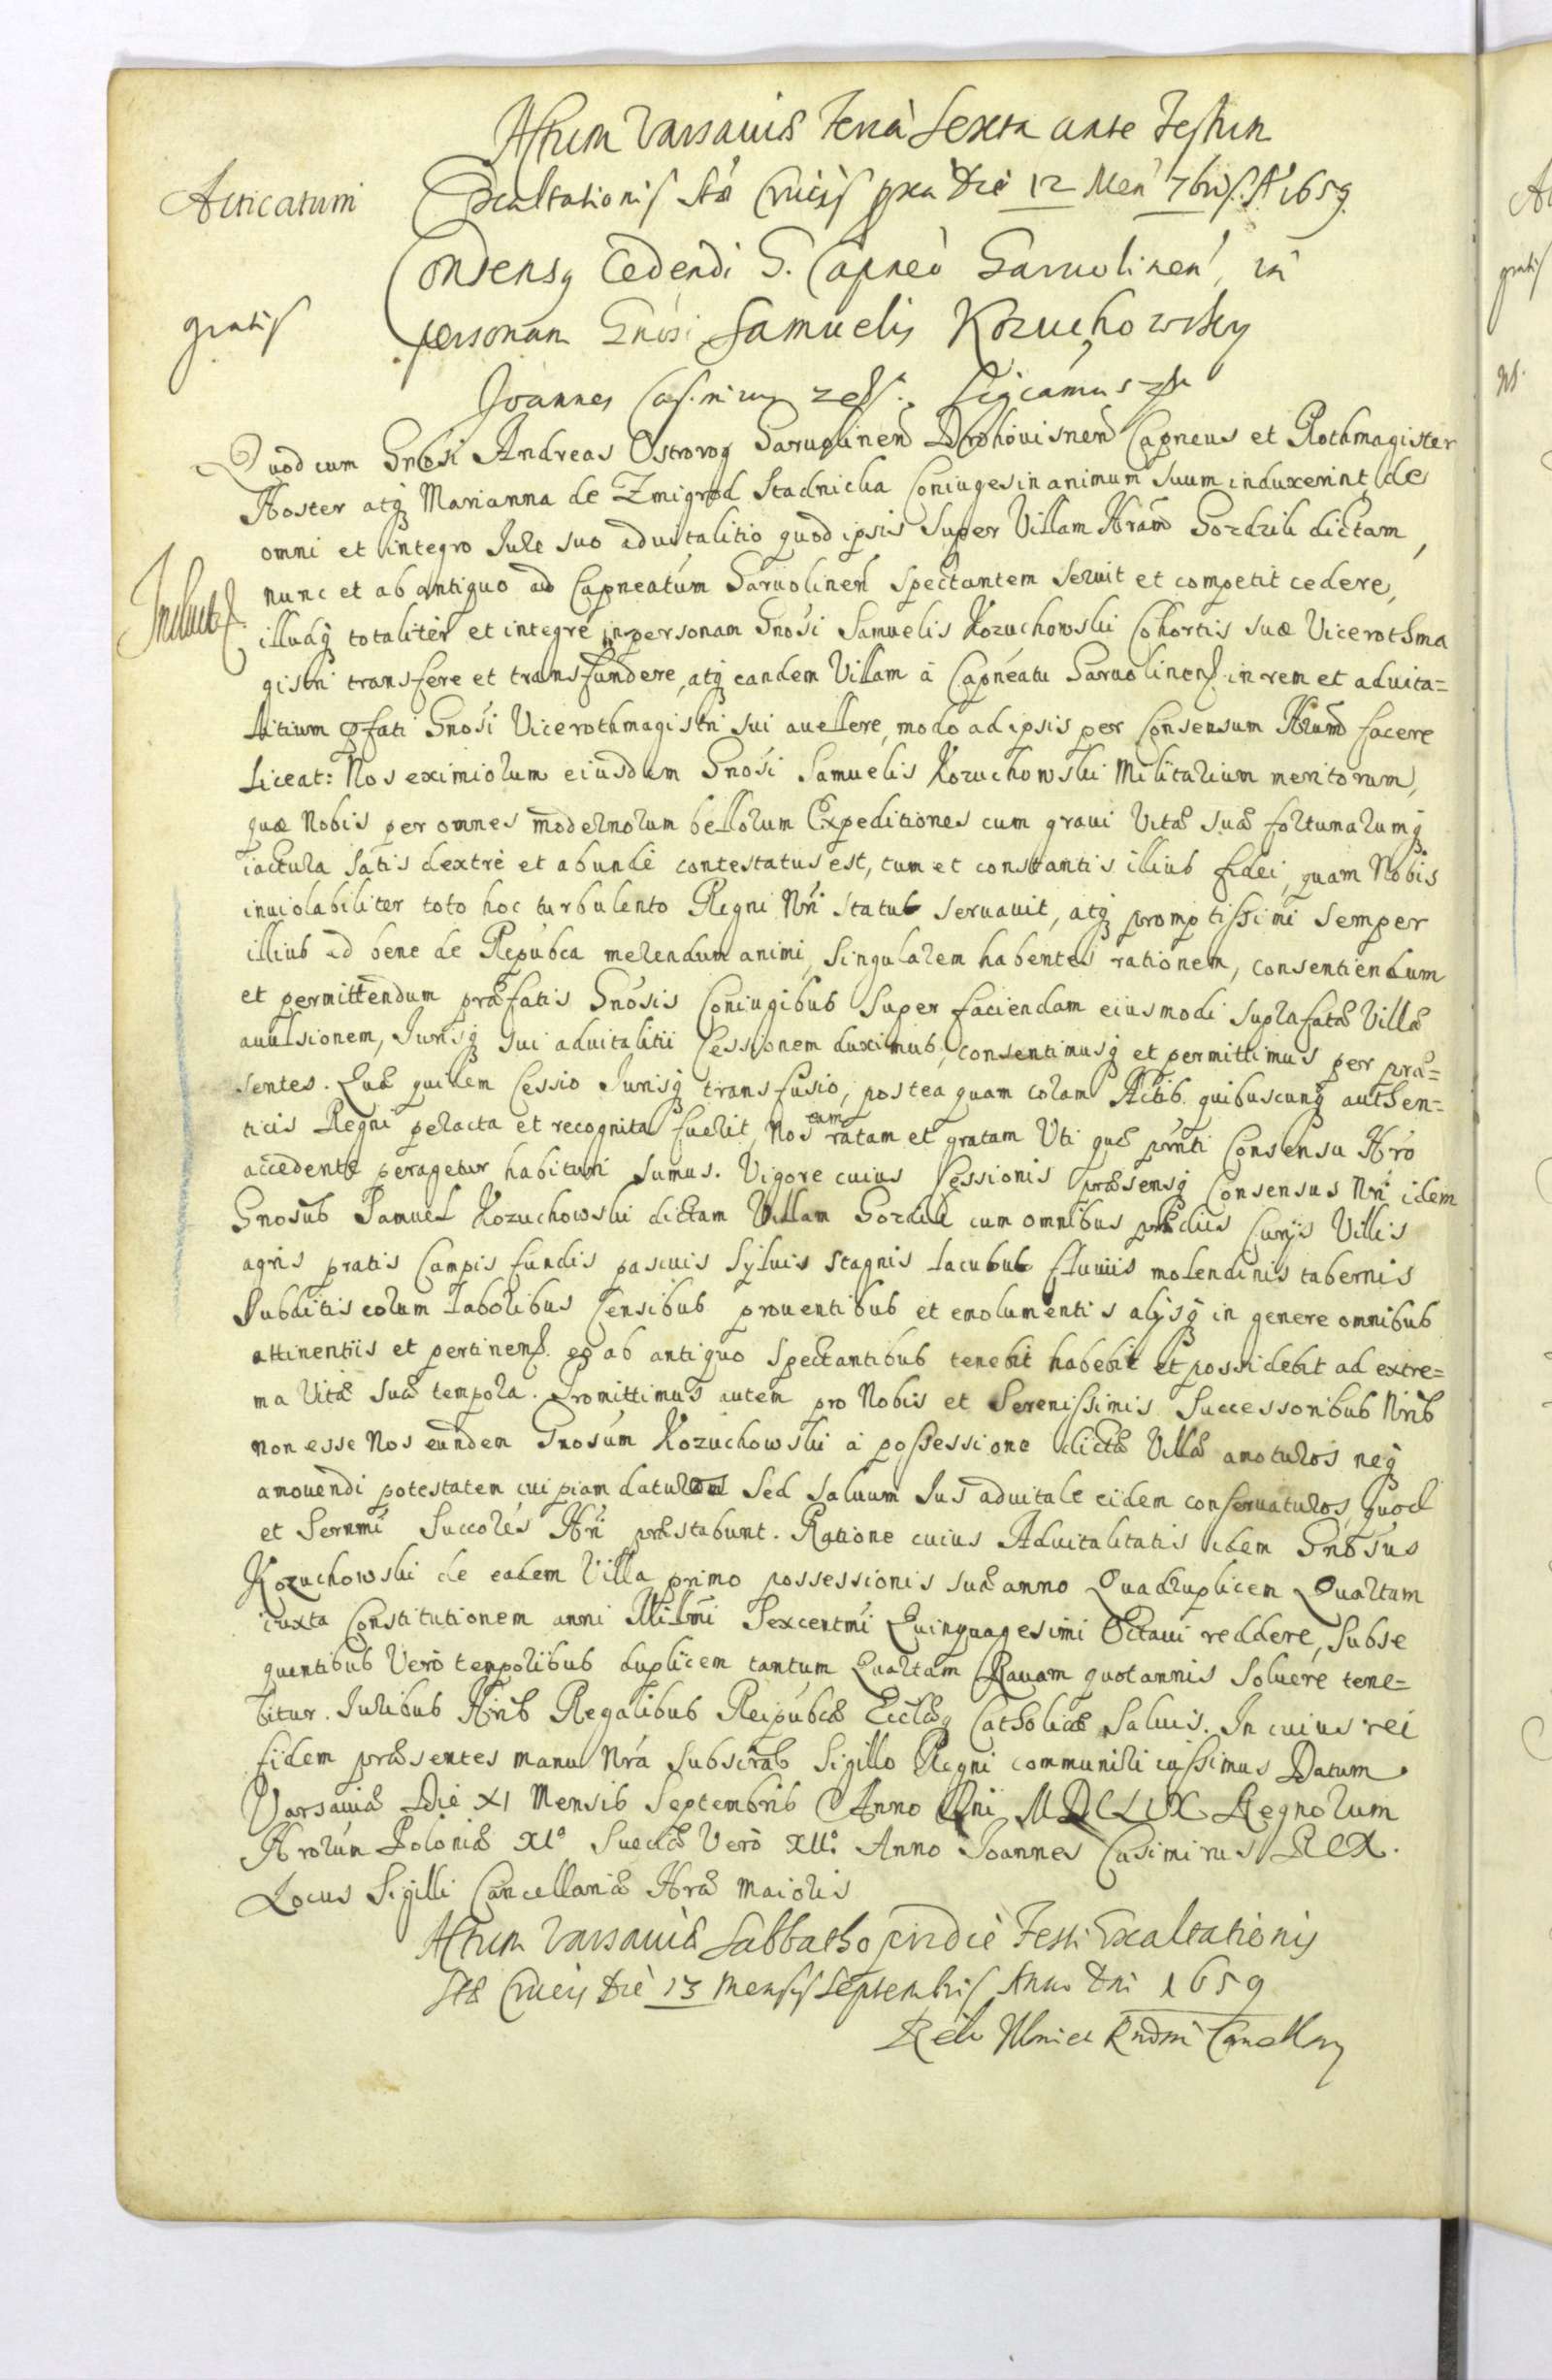 Actum Varsaviæ Feria Sexta ante Festum
Acticatum
Exaltationis Stæ Crucis pxa Die 12 Men 7bris A 1659
Consensq Cedendi G. Capneo Garvolinen, in
gratis
personam Gnosi Samuelis Kozuchowsky
Joannes Casimirus Sigcamus
Quod cum Gnosi Andreas Ostrorog Garvolinen Drohovisnen Capneus et Rothmagister
Noster atq Marianna de Zmigrod Stadnicka Coniuges in animum suum induxerint, de
omni et integro Jure suo advitalitio quod ipsis super Villam Nram Gozdzik dictam,
nunc et ab antiquo ad Capneatum Garvolinen spectantem servit et competit cedere,
Induct
illudq totaliter et integre in personam Gnosi Samuelis Kozuchowski Cohortis suæ Vicerothma
gistri transfere et transfundere, atq eandem Villam à Capneatu Garvolinen in rem et advita=
litium pfati Gnosi Vicerothmagistri sui avellere, modo ad ipsis per Consensum Nrum facere
liceat: Nos eximiorum eiusdem Gnosi Samuelis Kozuchowski Militarium meritorum,
quæ Nobis per omnes modernorum bellorum Expeditiones cum gravi Vitæ suæ fortunarumq
iactura satis dextrè et abundè contestatus est, tum et constantis illius fidei, quam Nobis
inviolabiliter toto hoc turbulento Regni Nri statu servavit, atq promptissimi semper
illius ad bene de Repubca merendum animi, singularem habentes rationem, consentiendum
et permittendum præfatis Gnosis Coniugibus super faciendam eiusmodi suprafatæ Villæ
avulsionem, Jurisq sui advitalitii Cessionem duximus, consentimusq et permittimus per præ=
sentes. Quæ quidem Cessio Jurisq transfusio, postea quam coram Actis quibuscunq authen=
ticis Regni peracta et recognita fuerit, Nos eam ratam et gratam Uti quæ prnti Consensu Nro
accedente peragetur habituri sumus. Vigore cuius Cessionis præsensq Consensus Nri idem
Gnosus Samuel Kozuchowski dictam Villam Gozdzik cum omnibus prædiis Curijs Villis
agris pratis Campis fundis pascuis sylvis stagnis lacubus fluviis molendinis tabernis
Subditis eorum laboribus Censibus proventibus et emolumentis alijsq in genere omnibus
attinentiis et pertinens. eo ab antiquo spectantibus tenebit habebit et possidebit ad extre=
ma Vitæ suæ tempora. Promittimus autem pro Nobis et Serenissimis Successoribus Nris
non esse Nos eundem Gnosum Kozuchowski à possessione dictæ Villæ amoturos neq
amovendi potestatem cuipiam daturos Sed salvum Jus advitale eidem conservaturos, quod
et Sernmi Succores Nri præstabunt. Ratione cuius Advitalitatis idem Gnosus
Kozuchowski de eadem Villa primo possessionis suæ anno Quadruplicem Quartam
iuxta Constitutionem anni Millmi Sexcentmi Quinquagesimi Octavi reddere, Subse
quentibus Verò temporibus duplicem tantum Quartam Ravam quotannis solvere tene=
bitur. Juribus Nris Regalibus Reipubcæ Ecclæq Catholicæ salvis. In cuius rei
fidem præsentes manu Nra subscras Sigillo Regni communiri iussimus Datum
Varsaviæ Die XI Mensis Septembris Anno Dni MDCLIX Regnorum
Nrorum Poloniæ XIo Sueciæ Verò XIIo Anno Joannes Casimirus Rex.
Locus Sigilli Cancellariæ Nræ Maioris
Actum Varsaviæ Sabbatho pridie Festi Exaltationis
Stæ Crucis Die 13 Mensis Septembris Anno Dni 1659